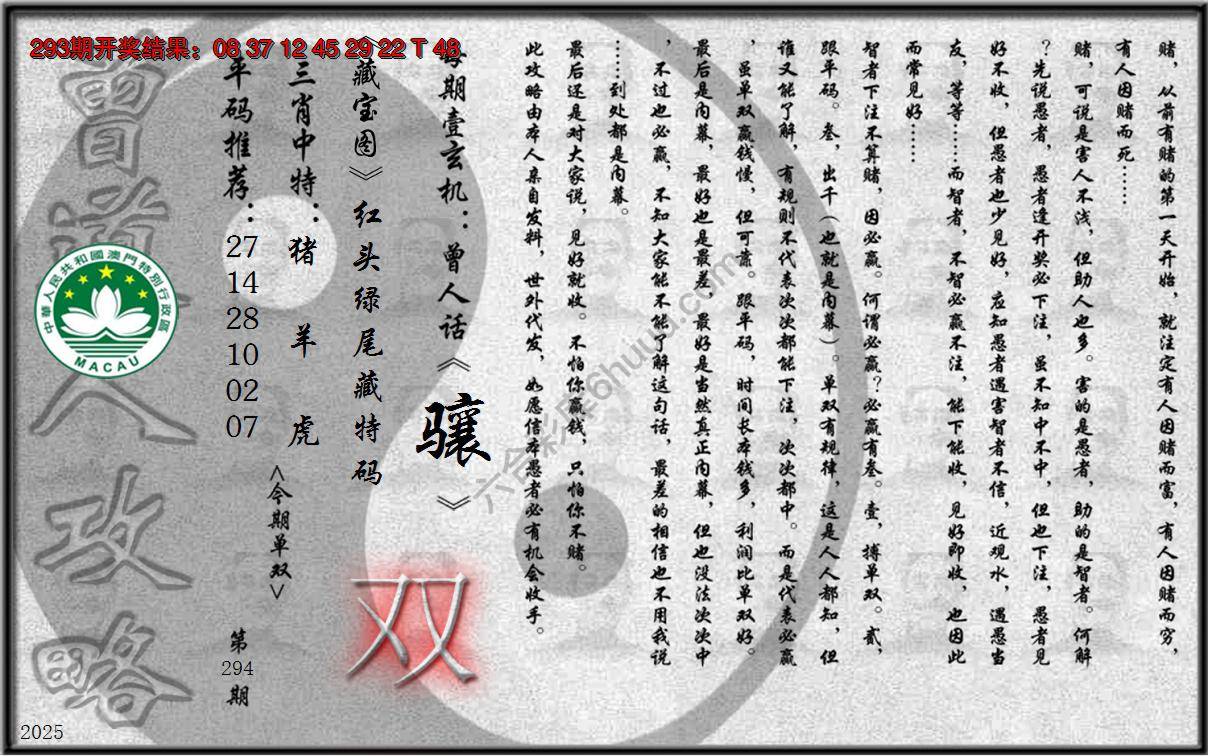 293期开奖结果：08 37 12 45 29 22 T 48
赌，从前有赌的第一天开始，就注定有人因赌而富，有人因赌而穷，
有人因赌而死……
赌，可说是害人不浅，但助人也多。害的是愚者，助的是智者。何解
？先说愚者，愚者逢开奖必下注，虽不知中不中，但也下注，愚者见
好不收，但愚者也少见好，应知愚者遇害智者不信，近观水，遇愚当
友，等等……而智者，不智必赢不注，能下能收，见好即收，也因此
而常见好……
智者下注不算赌，因必赢。何谓必赢？必赢有叁。壹，搏单双。贰，
跟平码。叁，出千（也就是内幕）。单双有规律，这是人人都知，但
谁又能了解，有规则不代表次次都能下注，次次都中。而是代表必赢
，虽单双赢钱慢，但可靠。跟平码，时间长本钱多，利润比单双好。
最后是内幕，最好也是最差，最好是当然真正内幕，但也没法次次中
，不过也必赢，不知大家能不能了解这句话，最差的相信也不用我说
……到处都是内幕。
最后还是对大家说，见好就收。不怕你赢钱，只怕你不赌。
此攻略由本人亲自发料，世外代发，如愿信本愚者必有机会收手。
每期壹玄机：曾人话《骧》
《藏宝图》红头绿尾藏特码
双
三肖中特：猪 羊 虎
<今期单双>
平码推荐：
27
14
28
10
02
07
第
294
期
曾道人攻略
中華人民共和國澳門特別行政區
MACAU
2025